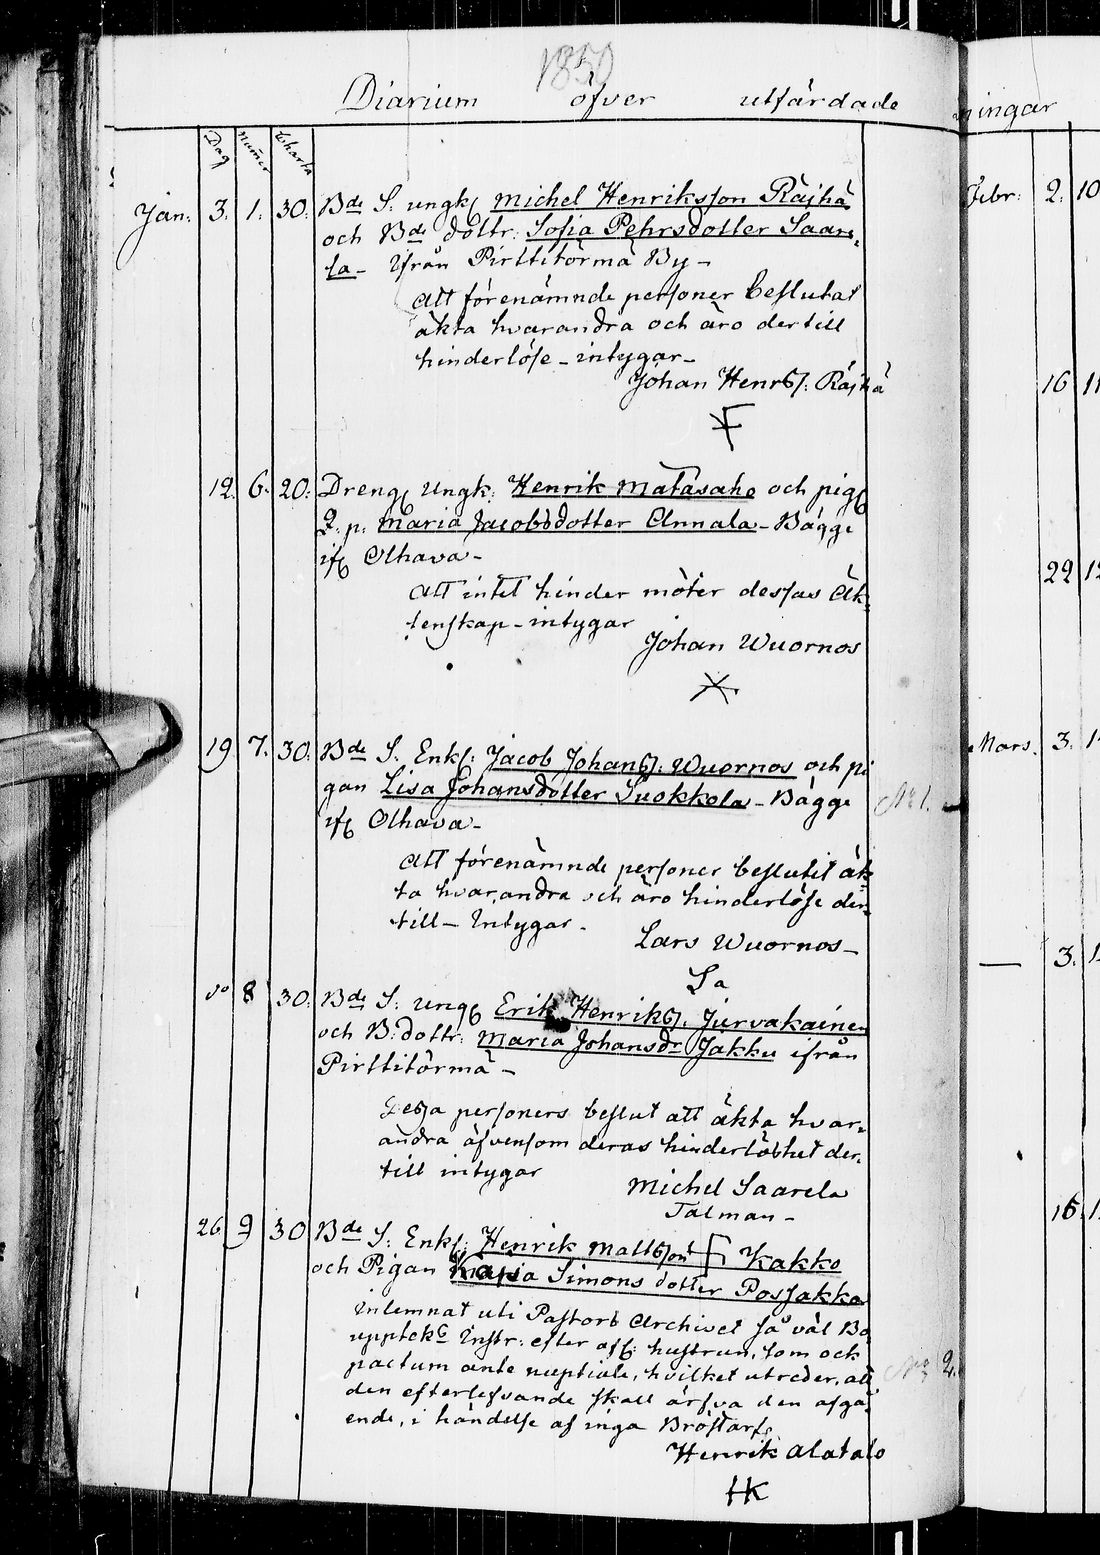 1850
Diarium öfver utfärdade
Dag Numer Charta
Jan: 3. 1. 30. Bde S. ungk Michel Henriksson Räihä
och Bde dottr: Sofia Pehrsdotter Saare-
la - ifrån Pirttitörmä By -
att förenämnde personer beslutat
äkta hvarandra och äro dertill
hinderlöse - intygar -
Johan Henrss: Räihä
12. 6. 20. Dreng Ungk: Henrik Matasaho och pig
Q. p. Maria Jacobsdotter Annala - Bägge
if Olhava -
att intet hinder möter dessas äk-
tenskap - intygar
Johan Wuornos
19. 7. 30. Bde S. Enkl: Jacob Johanss: Wuornos och pi
gan Lisa Johansdotter Suokkola - Bägge
if Olhava -
att förenämnde personer beslutit äk-
ta hvarandra och äro hinderlöse der-
till - Intygar -
Lars Wuornos -
do 8 30. Bde S: ung Erik Henrikss. Jurvakainen
och B: dottr: Maria Johansdr Jakku ifrån
Pirttitörmä -
Dessa personers beslut att äkta hvar-
andra äfvensom deras hinderlöshet der-
till intygar
Michel Saarela
Talman -
26 9 30 Bde S: Enkl: Henrik Mattsson Kakko
och Pigan Maria Simons dotter Posjakka
inlemnat uti Pastors Archivet så väl Bo
uppteks Instr: efter afl: hustrun, som ock
pactum ante nuptiale, hvilket utreder, att
den efterlefvande skall ärfva den afgå
ende, i händelse af inga Bröstarf.
Henrik Alatalo
HK
No 1.
No 2.
ningar
Febr: 2. 10
16 11
22 12
Mars. 3. 1
— 3. 1
16. 1